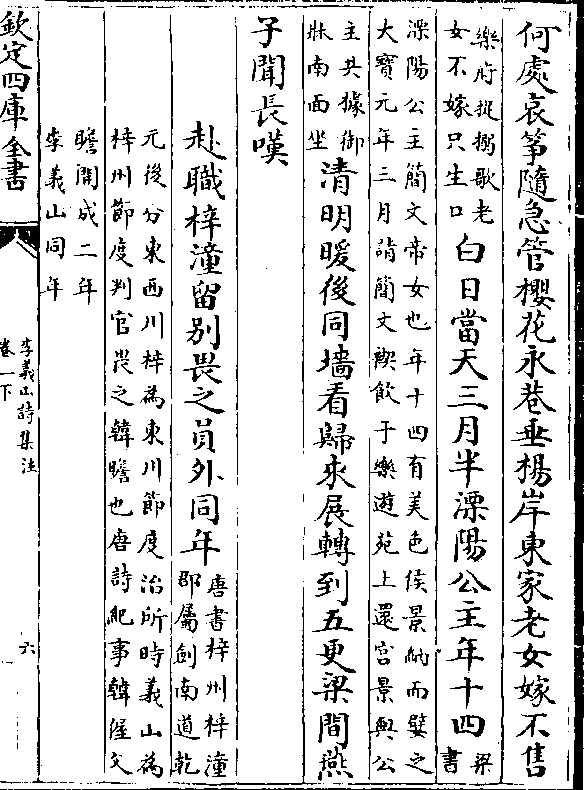 何處哀筝隨急管櫻花永巷垂楊岸東家老女嫁不售
樂府捉搦歌老
女不嫁只生口
白日當天三月半溧陽公主年十四
梁
書
溧陽公主簡文帝女也年十四有美色侯景納而嬖之
大寶元年三月請簡文禊飲于樂遊苑上還宫景與公
主共據御
牀南面坐
清明暖後同墻看歸來展轉到五更梁間燕
子聞長嘆
赴職梓潼留别畏之員外同年
唐書梓州梓潼
郡屬劍南道乾
元後分東西川梓為東川節度治所時義山為
梓州節度判官畏之韓瞻也唐詩紀事韓偓父
瞻開成二年
李義山同年
欽定四庫全書
李義山詩集注
卷一下
六